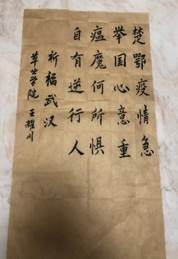 楚鄂疫情急
举国心意重
瘟魔何所惧
自有逆行人
祈福武汉
草业学院 王耀川